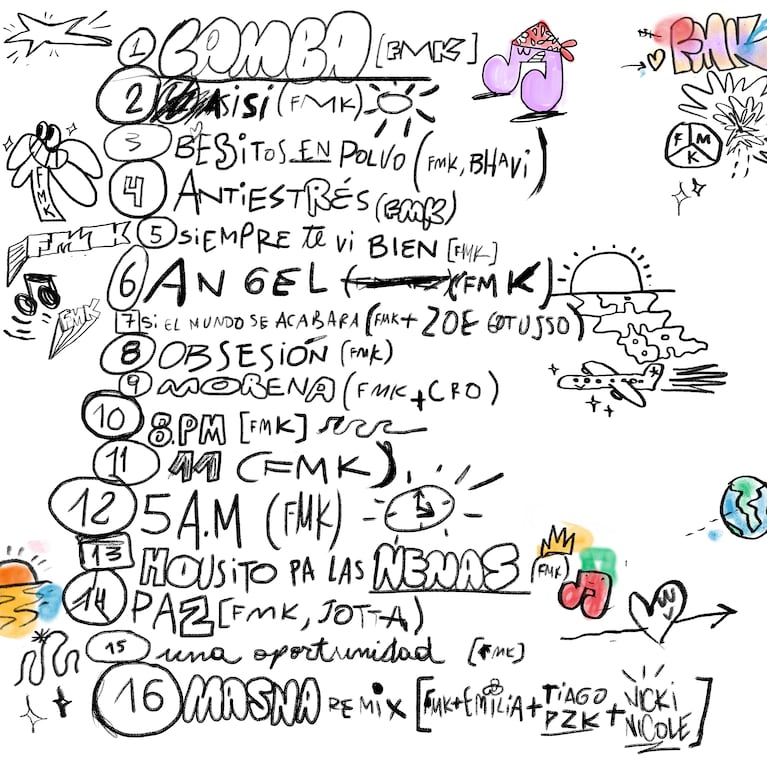 1 BOMBA [FMK]
FMK
2 ASISI (FMK)
3 BEBITOS EN POLVO (FMK, BHAVI)
F M K
4 ANTIESTRÉS (FMK)
FMK
5 SIEMPRE te VI BIEN [FMK]
FMK
6 ANGEL (FMK)
7 Si EL MUNDO SE ACABARA (FMK + ZOE GOTUSSO)
FMK
8 OBSESIÓN (FMK)
9 MORENA (FMK + CRO)
10 8.PM [FMK]
11 11 (FMK)
12 5 A.M (FMK)
13 HOUSITO PA LAS NENAS (FMK)
14 PAZ [FMK, JOTTA)
15 una oportunidad [FMK]
16 MASNA REMIX [FMK + EMILIA + TIAGO PZK + NICKI NICOLE]